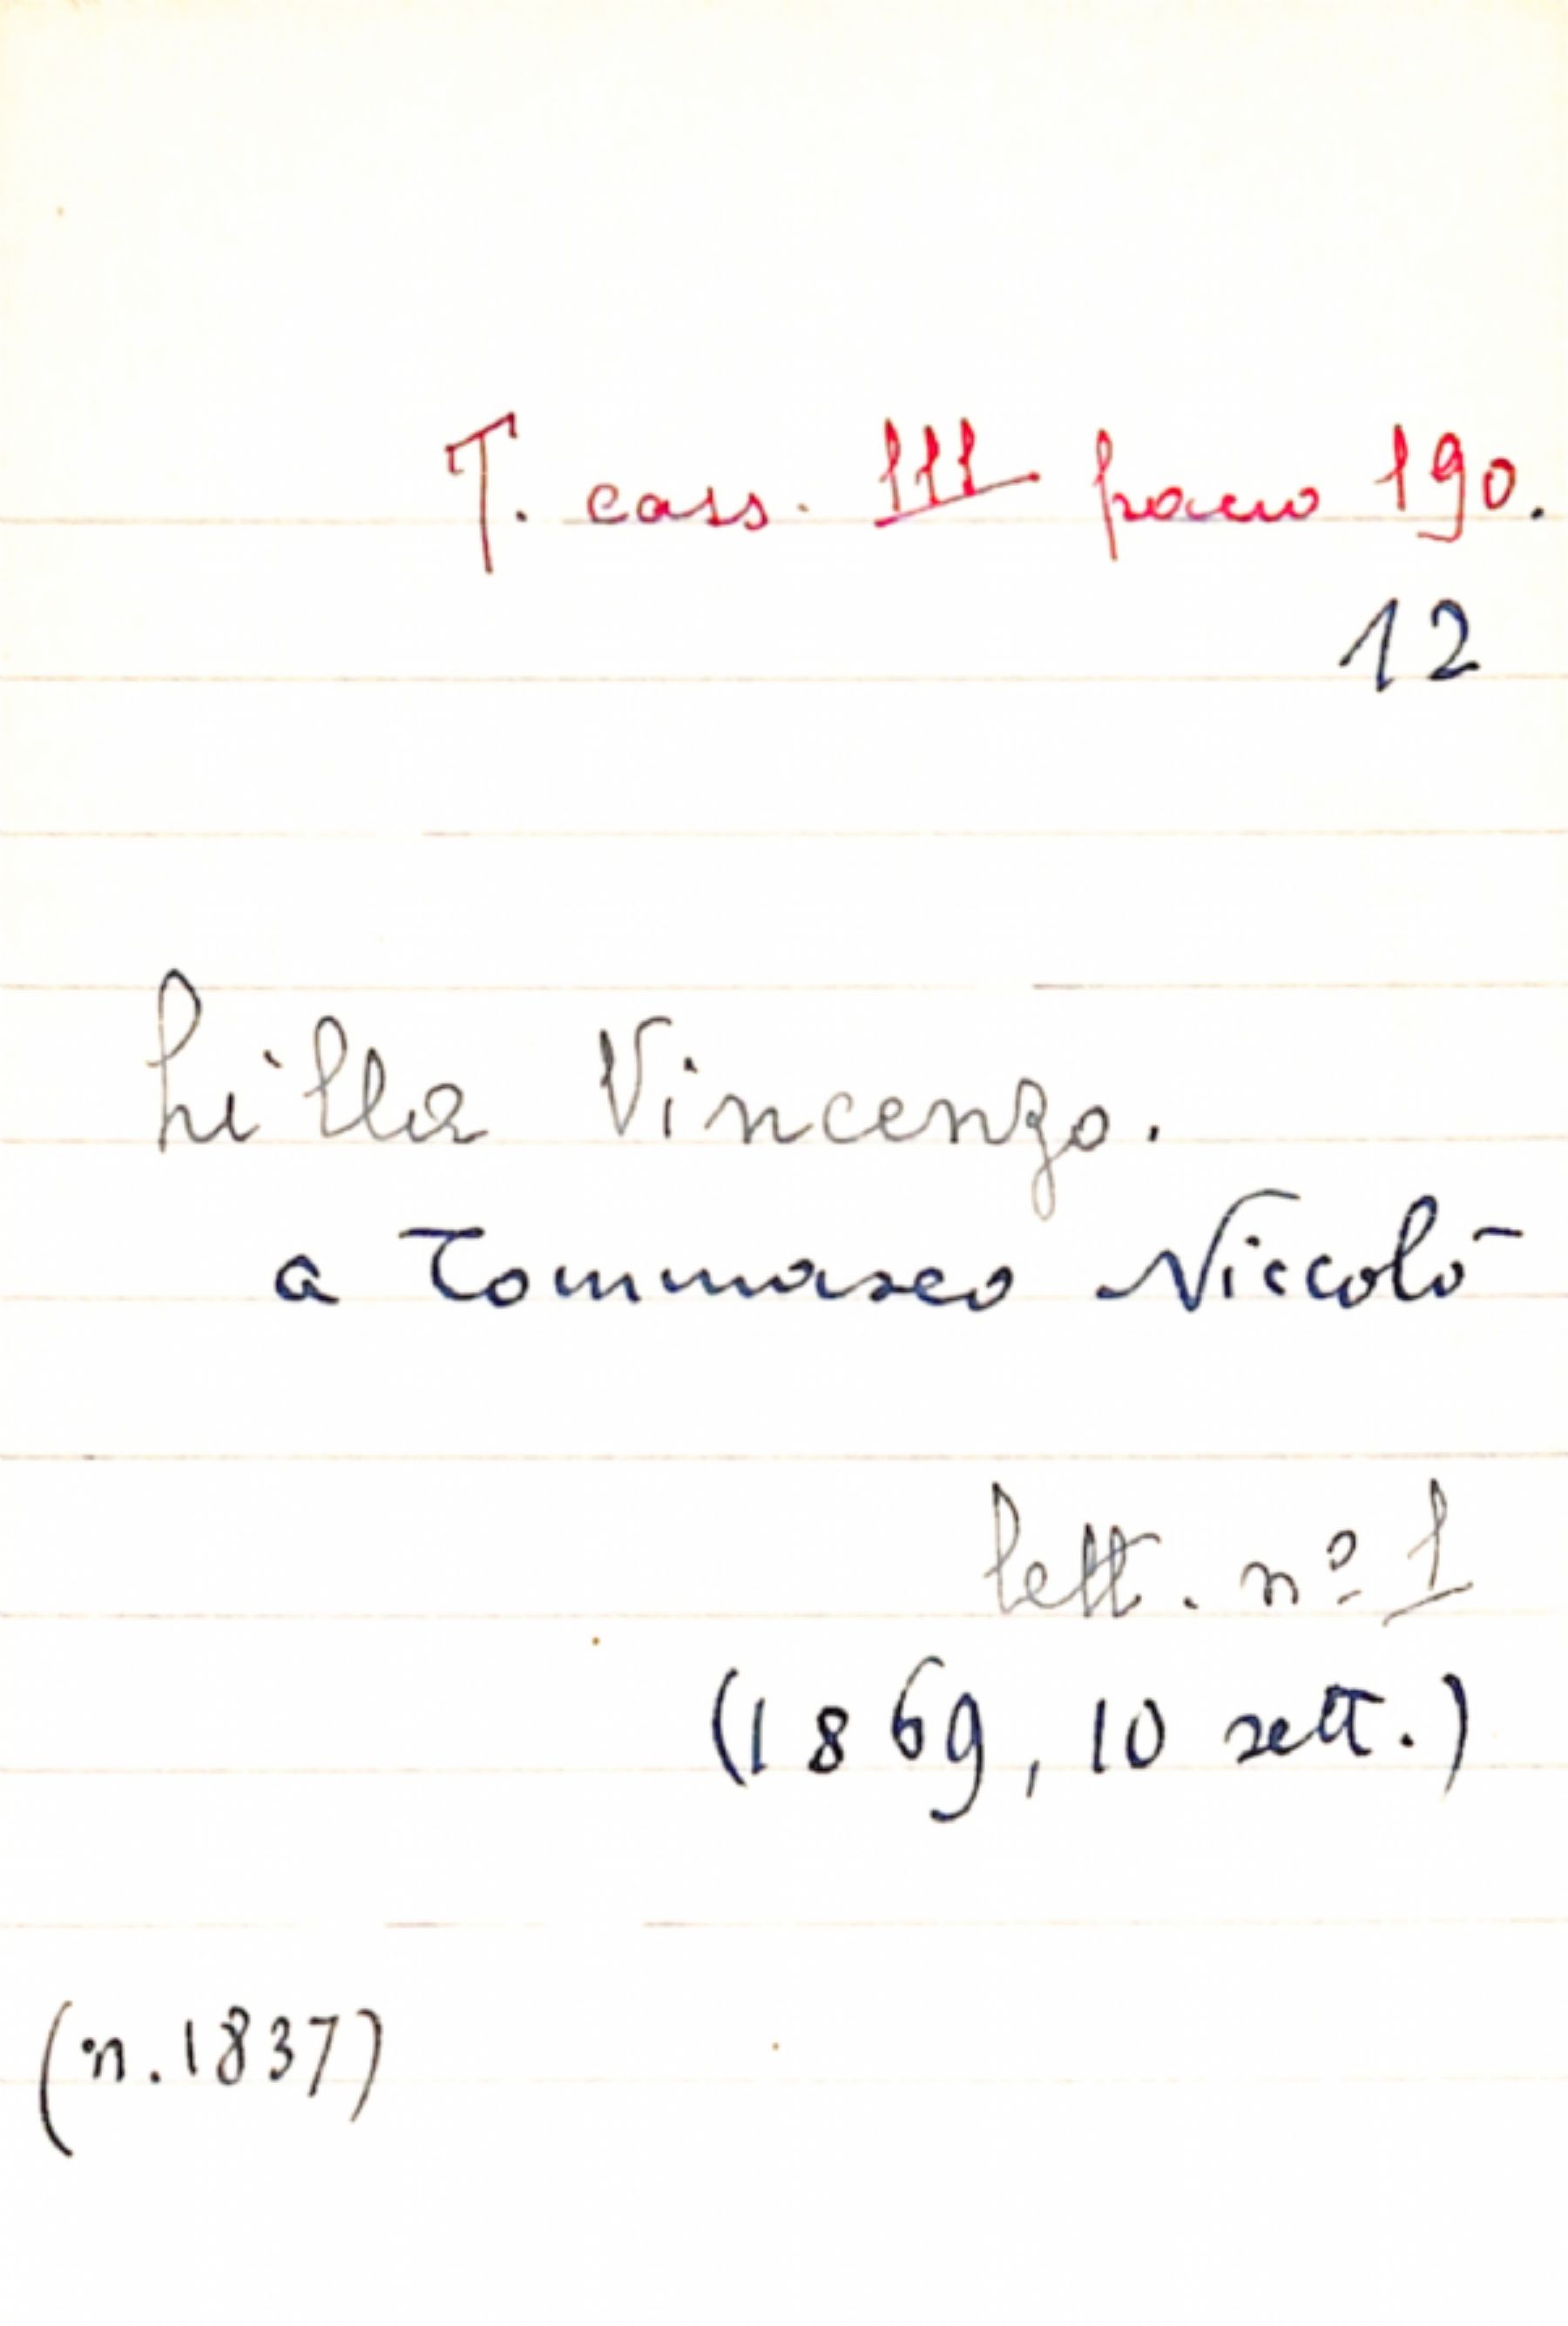 T. cass. III pacco 190.
12
Lilla Vincenzo.
a Tommaseo Niccolò
lett. nº 1
(1869, 10 sett.)
(n. 1837)